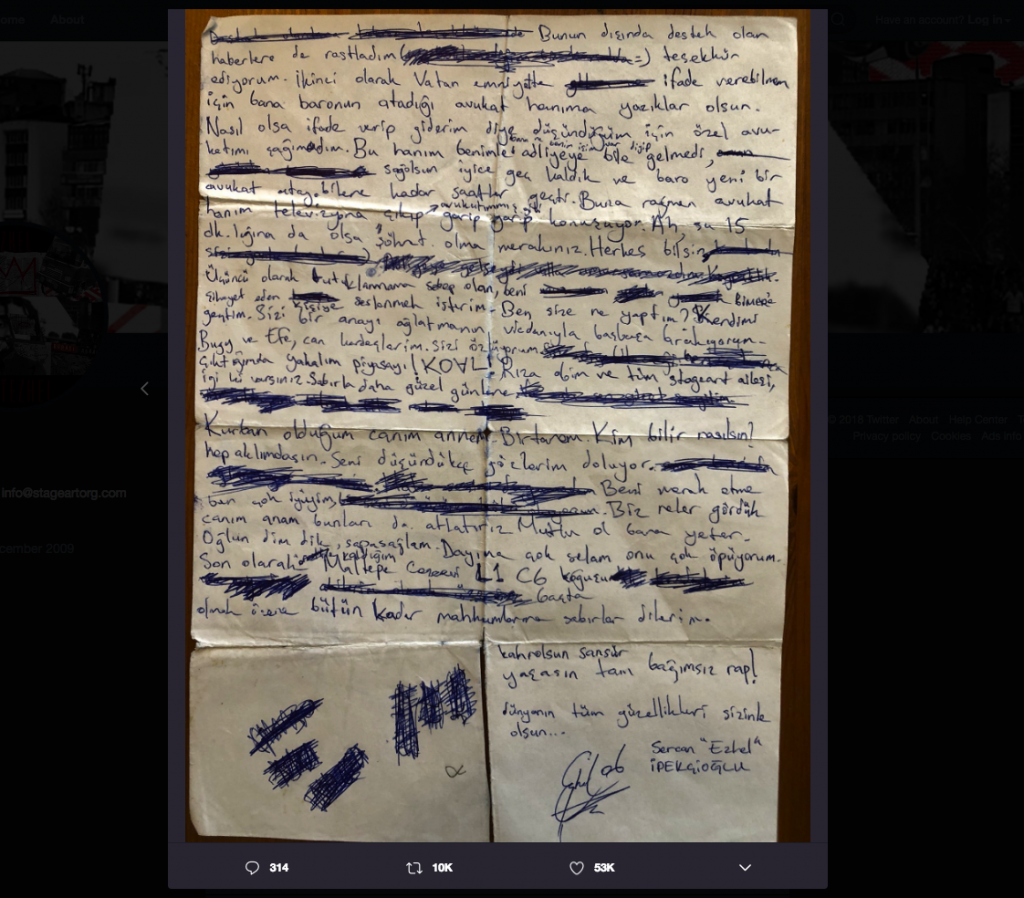 ome
About
Have an account? Log in
Bunun dışında destek olan
haberlere de rastladım( =) teşekkür
ediyorum. İkinci olarak Vatan emniyette ifade verebilmem
için bana baronun atadığı avukat hanıma yazıklar olsun.
Nasıl olsa ifade verip giderim diye düşündüğüm için özel avu-
katımı çağırmadım. Bu hanım benimle adliyeye bile gelmedi,
sağolsun iyice geç kaldık ve baro yeni bir
avukat atayabilene kadar saatler geçti. Buna rağmen avukat
hanım televizyona çıkıp avukatımmış garip garip konuşuyor. Ah, şu 15
dk.lığına da olsa şöhret olma merakınız. Herkes bilsin
Üçüncü olarak tutuklanmama sebep olan, beni BİMER'e
şikayet eden kişiye seslenmek isterim. Ben size ne yaptım? Kendimi
geçtim. Sizi bir anayı ağlatmanın vicdanıyla başbaşa bırakıyorum.
Bugy ve Efe, can kardeşlerim. Sizi özlüyorum
çıktığımda yakalım piyasayı! KOAL Rıza abim ve tüm stageart ailesi,
iyi ki varsınız. Sabırla daha güzel günlere.
Kurban olduğum canım annem. Birtanem. Kim bilir nasılsın?
hep aklımdasın. Seni düşündükçe gözlerim doluyor.
Beni merak etme
ben çok iyiyim, Biz neler gördük
canım anam bunları da atlatırız. Mutlu ol bana yeter.
Oğlun dim dik, sapasağlam. Dayıma çok selam onu çok öpüyorum.
Son olarak kaldığım Maltepe Cezaevi L1 C6 koğuşu
başta
olmak üzere bütün kader mahkumlarına sabırlar dilerim.
kahrolsun sansür
yaşasın tam bağımsız rap!
dünyanın tüm güzellikleri sizinle
olsun...
Sercan "Ezhel"
İPEKÇİOĞLU
info@stageartorg.com
cember 2009
© 2018 Twitter About Help Center
Privacy policy Cookies Ads info
314
10K
53K